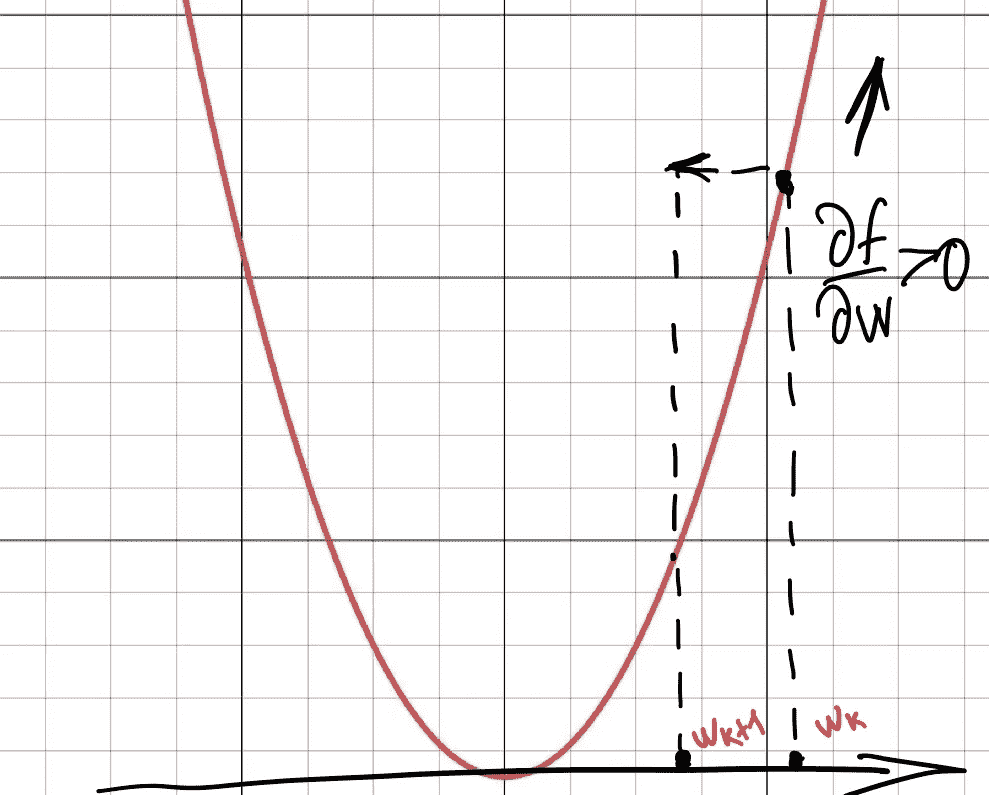 ∂f/∂w >0
wk+1 wk